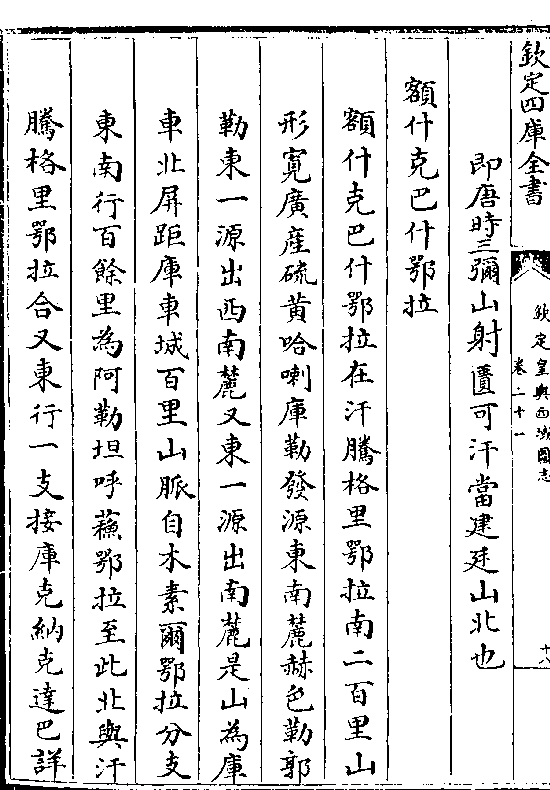 欽定四庫全書
欽定皇輿西域圖志
卷二十一
十八
即唐時三彌山射匱可汗當建廷山北也
額什克巴什鄂拉
額什克巴什鄂拉在汗騰格里鄂拉南二百里山
形寛廣產硫黄哈喇庫勒發源東南麓赫色勒郭
勒東一源出西南麓又東一源出南麓是山為庫
車北屏距庫車城百里山脈自木素爾鄂拉分支
東南行百餘里為阿勒坦呼蘓鄂拉至此北與汗
騰格里鄂拉合又東行一支接庫克納克達巴詳